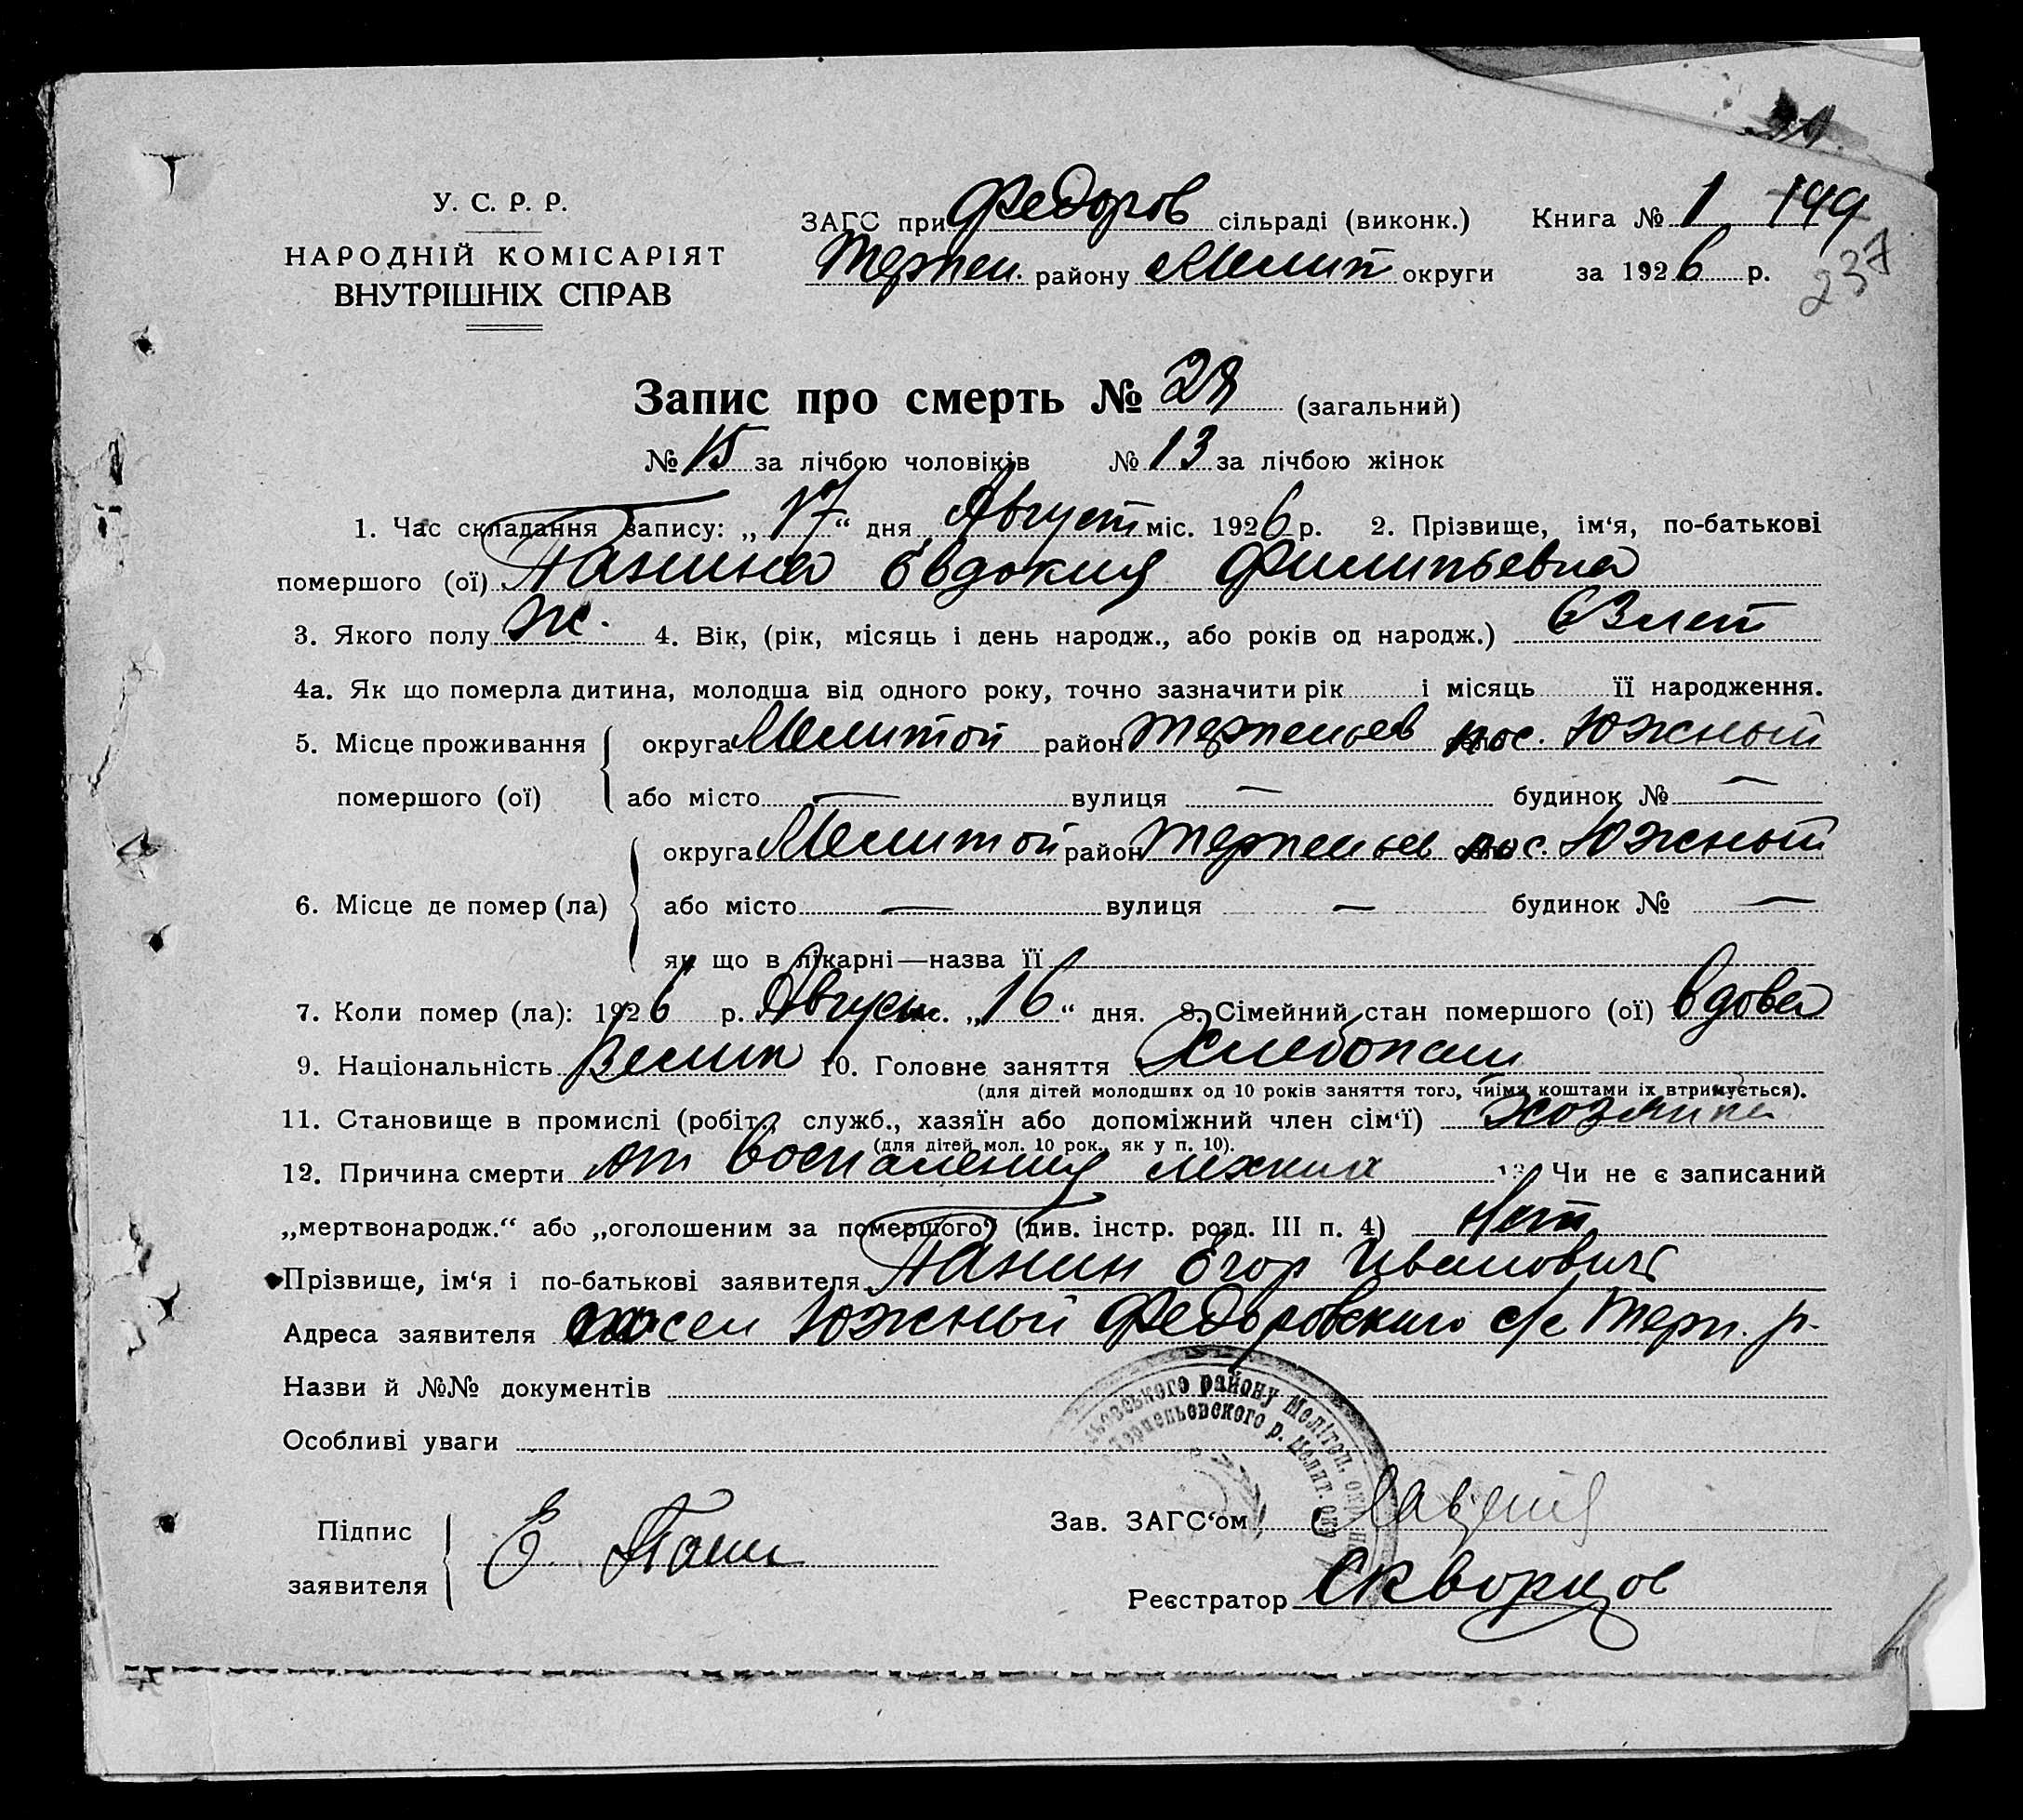 У. С. Р. Р.
НАРОДНІЙ КОМІСАРІЯТ
ВНУТРІШНІХ СПРАВ
ЗАГС при Федоров сільраді (виконк.) Книга № 1 149
Терпен. району Мелит округи за 1926 р.
237
Запис про смерть № 28 (загальний)
№ 15 за лічбою чоловіків № 13 за лічбою жінок
1. Час складання запису: „17“ дня Август міс. 1926 р. 2. Прізвище, ім‘я, по-батькові
помершого (ої) Панина Евдокия Филипьевна
3. Якого полу Ж. 4. Вік, (рік, місяць і день народж., або років од народж.) 63 лет
4а. Як що померла дитина, молодша від одного року, точно зазначити рік і місяць її народження.
5. Місце проживання округа Мелитоп район Терпеньев пос. Южный
помершого (ої) або місто — вулиця — будинок № —
округа Мелитоп район Терпеньев пос. Южный
6. Місце де помер (ла) або місто — вулиця — будинок № —
як що в лікарні—назва її
7. Коли помер (ла): 1926 р. Август „16“ дня. 8. Сімейний стан помершого (ої) вдова
9. Національність Велик 10. Головне заняття Хлебопаш
(для дітей молодших од 10 років заняття того, чиїми коштами їх втримується).
11. Становище в промислі (робіт., служб., хазяїн або допоміжний член сім‘ї) хозяика
(для дітей мол. 10 рок., як у п. 10).
12. Причина смерти от воспаления лехких 13. Чи не є записаний
„мертвонародж.“ або „оголошеним за помершого“ (див. інстр. розд. III п. 4) Нет
Прізвище, ім‘я і по-батькові заявителя Панин Егор Иванович
Адреса заявителя посел Южный Федоровского с/с Терп. р.
Назви й №№ документів
Особливі уваги
ьовського району Меліт­оп. окр.
Терпельевского р. Мелит. окр.
Підпис
заявителя Е. Пани
Зав. ЗАГС‘ом
Реєстратор Скворцов